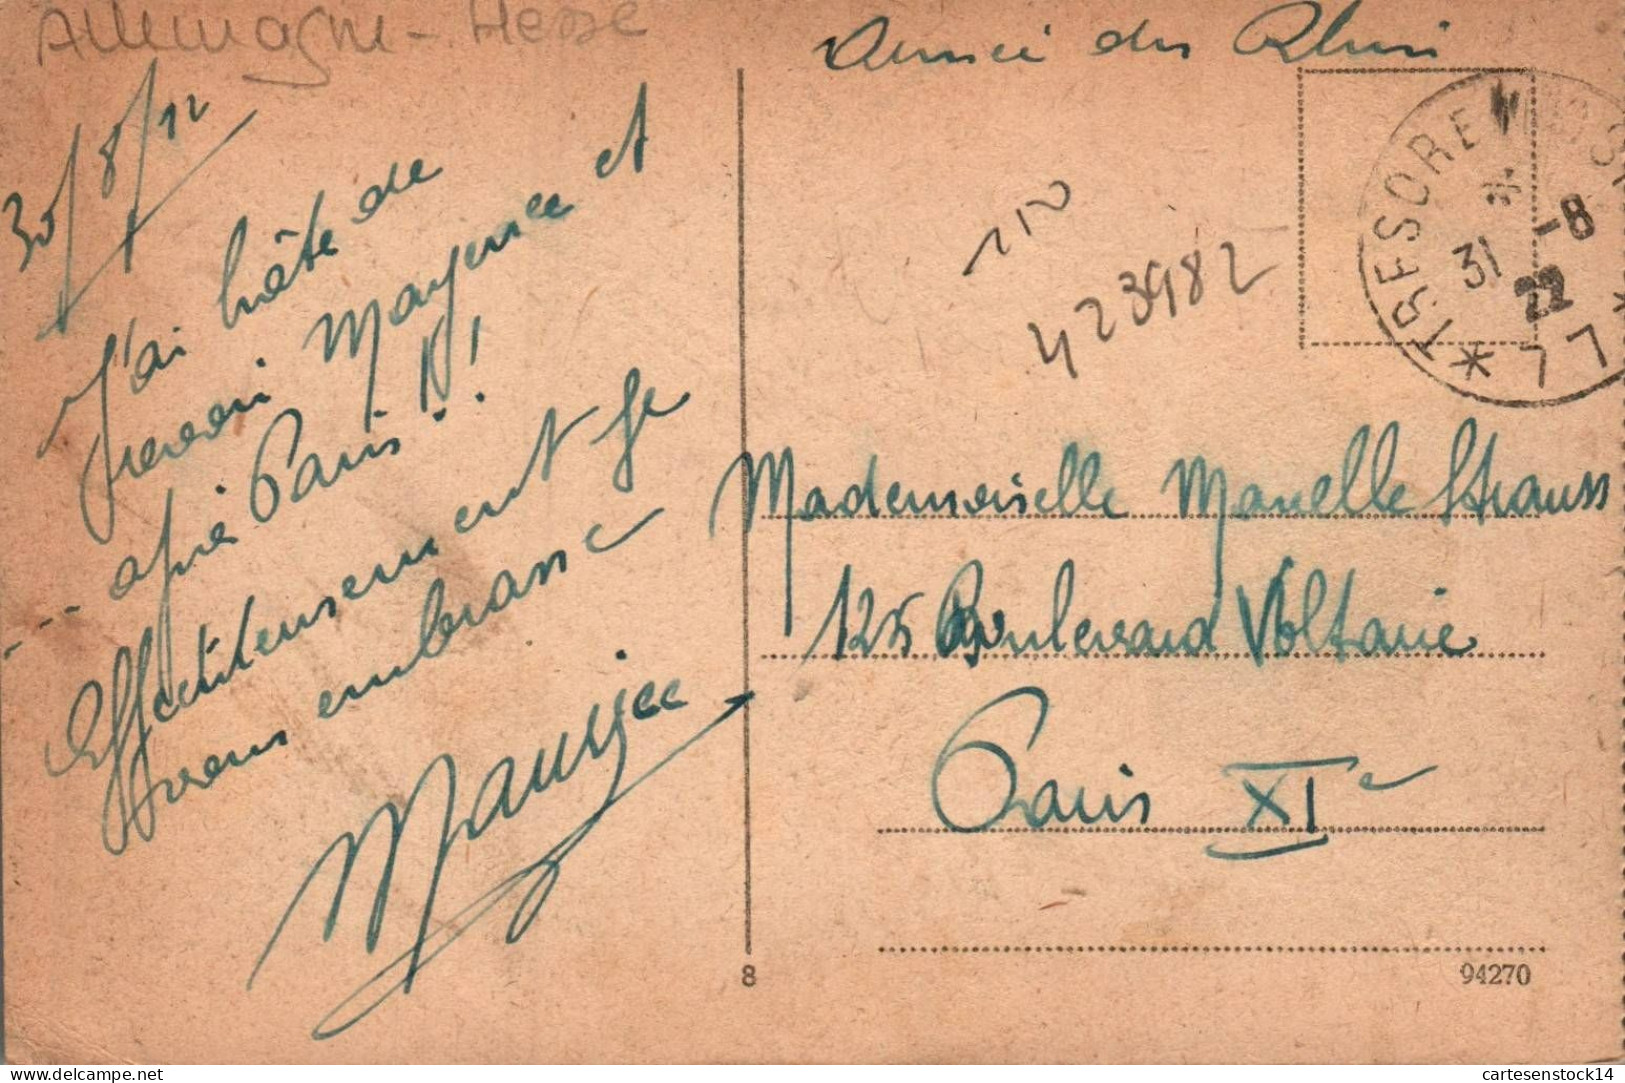 Allemagne - Hesse
Armée du Rhin
30/8/22
J'ai hâte de
revoir Mayence et
--- après Paris !!
Affectueusement je
vous embrasse
Maurice
210
423982
TRESOR ET POSTES
31 -8
22
* 77 *
Mademoiselle Marcelle Strauss
125 Boulevard Voltaire
Paris XIe
8
94270
cartesenstock14